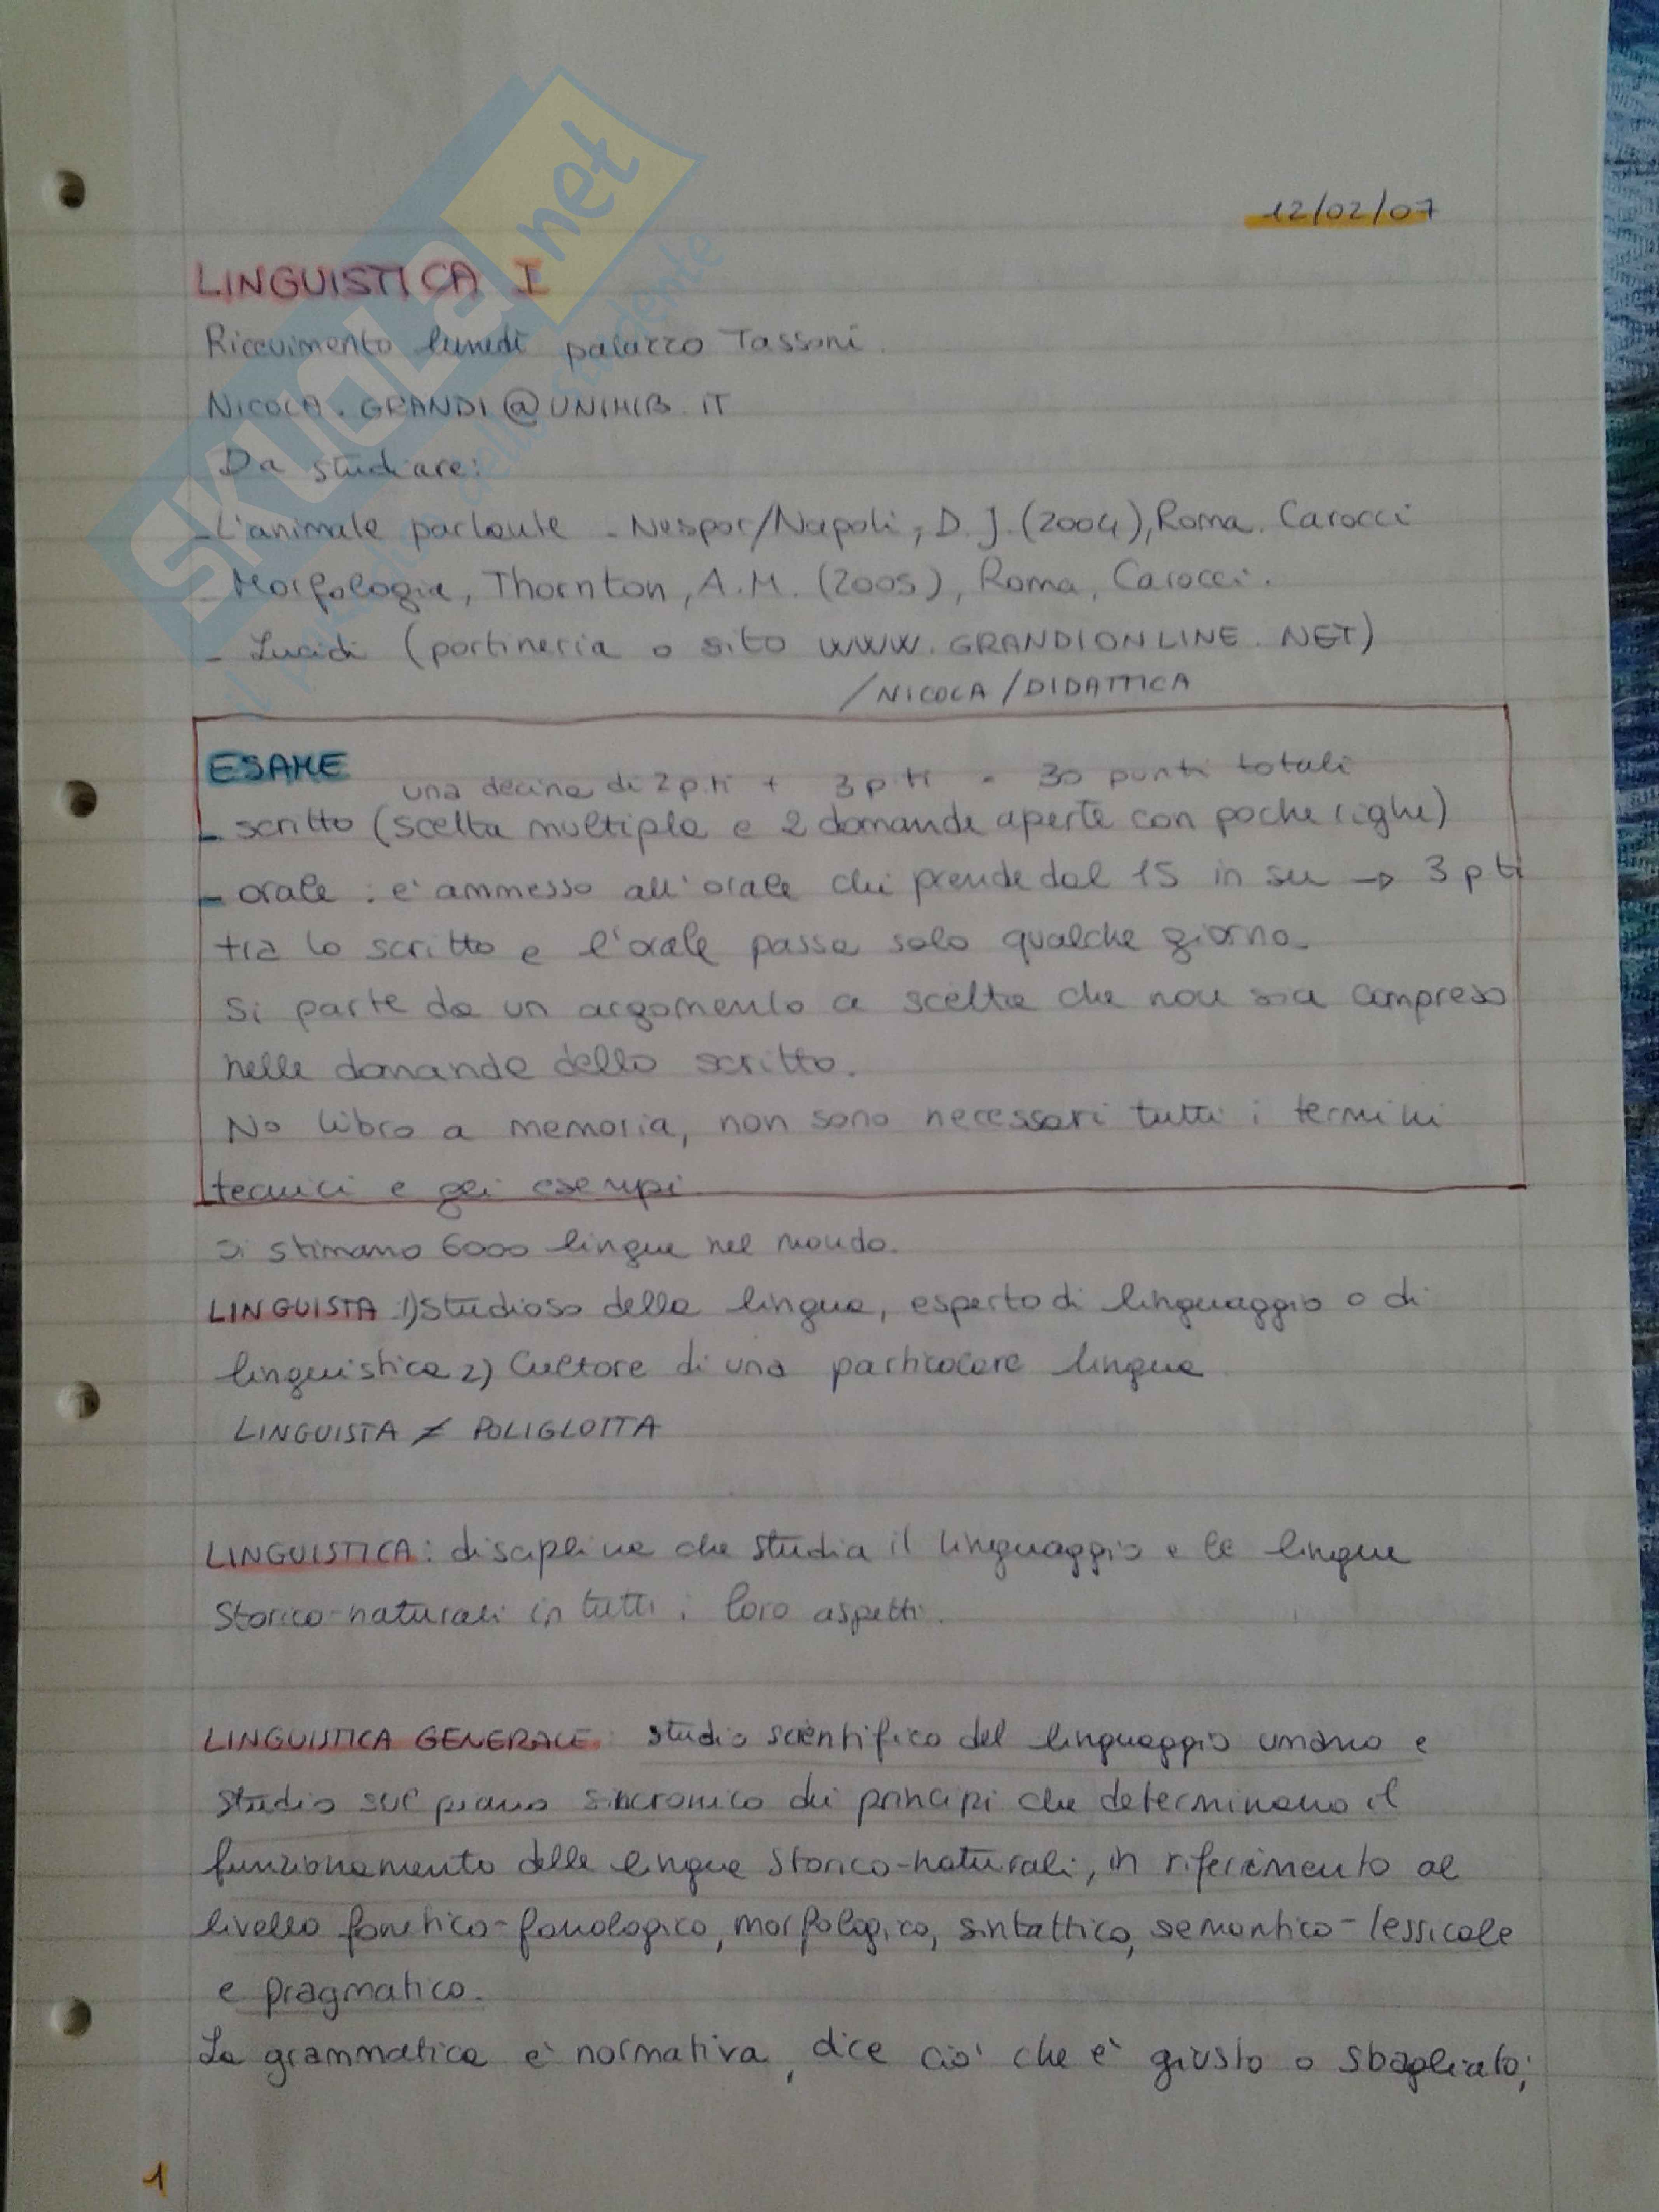 12/02/07
LINGUISTICA I
Ricevimento lunedì palazzo Tassoni.
NICOLA.GRANDI@UNIMIB.IT
Da studiare:
- L'animale parlante - Nespor/Napoli, D.J. (2004), Roma. Carocci
- Morfologia, Thornton, A.M. (2005), Roma, Carocci.
- Lucidi (portineria o sito WWW.GRANDIONLINE.NET)
/NICOLA/DIDATTICA
ESAME
una decina di 2 p.ti + 3 p.ti = 30 punti totali
- scritto (scelta multipla e 2 domande aperte con poche righe)
- orale : e' ammesso all'orale chi prende dal 15 in su → 3 p ti
tra lo scritto e l'orale passa solo qualche giorno.
Si parte da un argomento a scelta che non sia compreso
nelle domande dello scritto.
No libro a memoria, non sono necessari tutti i termini
tecnici e gli esempi.
Si stimano 6000 lingue nel mondo.
LINGUISTA: 1) studioso della lingua, esperto di linguaggio o di
linguistica 2) Cultore di una particolare lingua.
LINGUISTA ≠ POLIGLOTTA
LINGUISTICA: disciplina che studia il linguaggio e le lingue
Storico-naturali in tutti i loro aspetti.
LINGUISTICA GENERALE: studio scientifico del linguaggio umano e
studio sul piano sincronico dei principi che determinano il
funzionamento delle lingue storico-naturali, in riferimento al
livello fonetico-fonologico, morfologico, sintattico, semantico-lessicale
e pragmatico.
La grammatica e' normativa, dice cio' che e' giusto o sbagliato;
1
SKUOLA.net
il paradiso dello studente